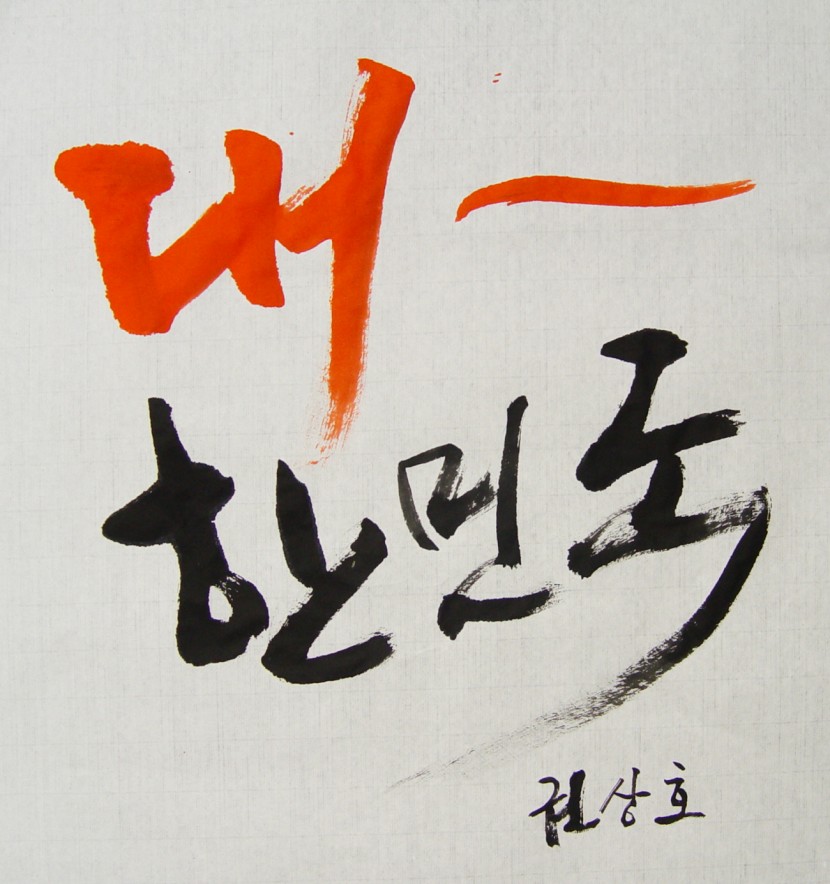 대~
한민국
권상호